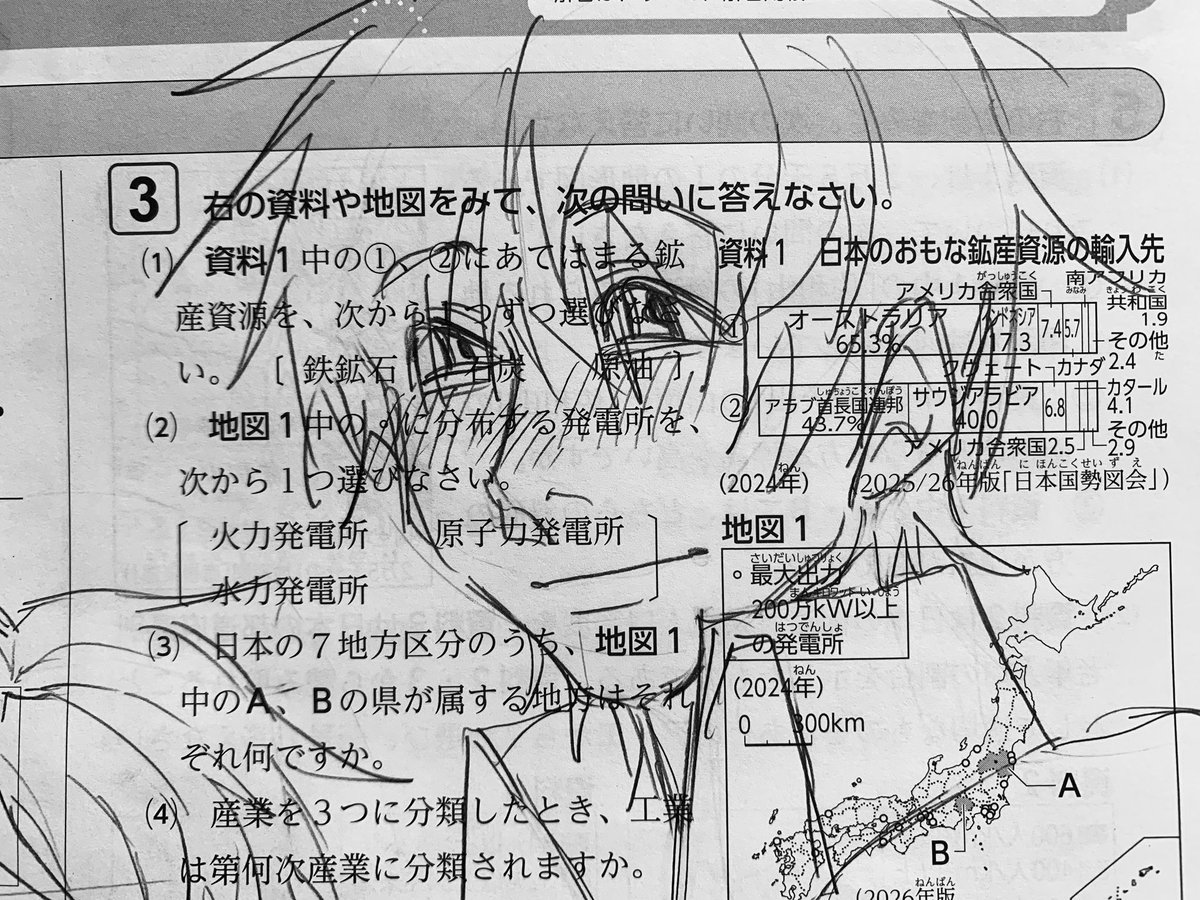 3 右の資料や地図をみて、次の問いに答えなさい。
(1) 資料1中の①、②にあてはまる鉱
産資源を、次から1つずつ選びなさ
い。〔 鉄鉱石 石炭 原油 〕
(2) 地図1中の◦に分布する発電所を、
次から1つ選びなさい。
火力発電所 原子力発電所
水力発電所
(3) 日本の7地方区分のうち、地図1
中のA、Bの県が属する地方はそれ
ぞれ何ですか。
(4) 産業を3つに分類したとき、工業
は第何次産業に分類されますか。
資料1 日本のおもな鉱産資源の輸入先
がっしゅうこく
アメリカ合衆国
みなみ
南アフリカ
きょうわこく
共和国
1.9
①
オーストラリア
65.3%
インドネシア
17.3
7.4
5.7
その他
た
2.4
クウェート
カナダ
②
しゅちょうこくれんぽう
アラブ首長国連邦
43.7%
サウジアラビア
40.0
6.8
カタール
4.1
その他
2.9
アメリカ合衆国2.5
ねん
(2024年)
ねんばん にほんこくせいずえ
(2025/26年版「日本国勢図会」)
地図1
さいだいしゅつりょく
◦最大出力
まんキロワットいじょう
200万kW以上
はつでんしょ
の発電所
ねん
(2024年)
0 300km
A
B
ねんばん
(2026年版